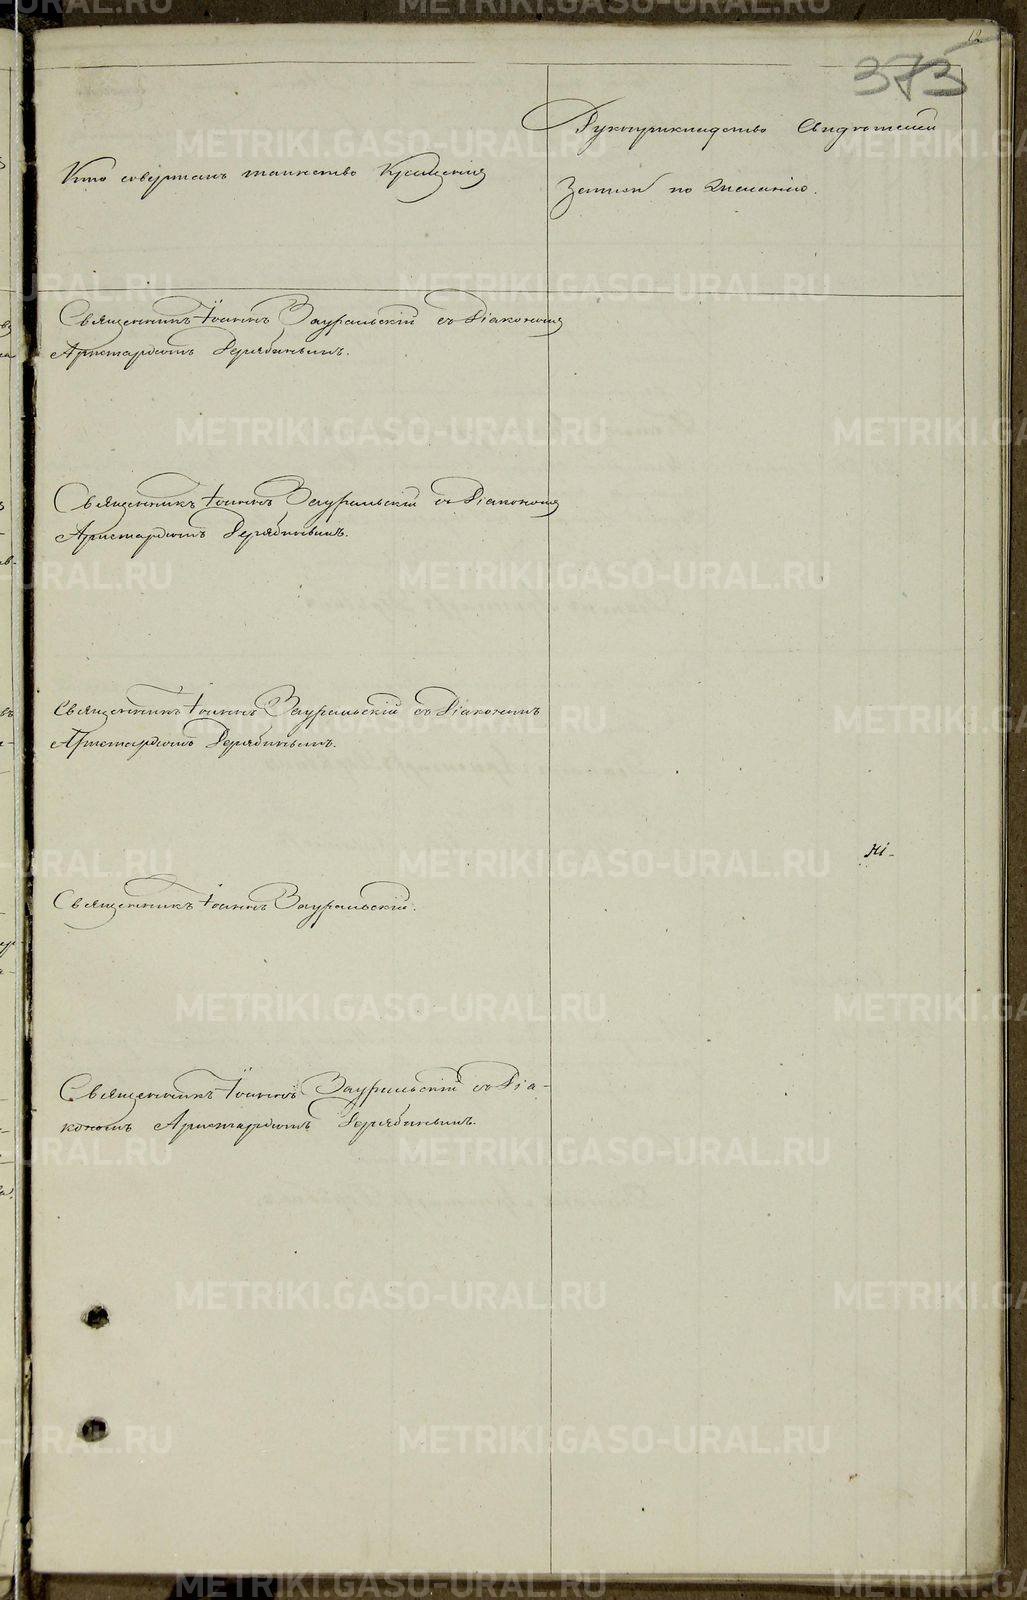 12
373
Кто совершалъ таинство Крещенія
Рукоприкладство Свидѣтелей
Записи по желанію.
Священникъ Іоаннъ Зауральскій съ Діакономъ
Аристархомъ Дерябинымъ.
Священникъ Іоаннъ Зауральскій съ Діакономъ
Аристархомъ Дерябинымъ.
Священникъ Іоаннъ Зауральскій съ Діакономъ
Аристархомъ Дерябинымъ.
Ні-
Священникъ Іоаннъ Зауральскій.
Священникъ Іоаннъ Зауральскій съ Діа-
кономъ Аристархомъ Дерябинымъ.
METRIKI.GASO-URAL.RU